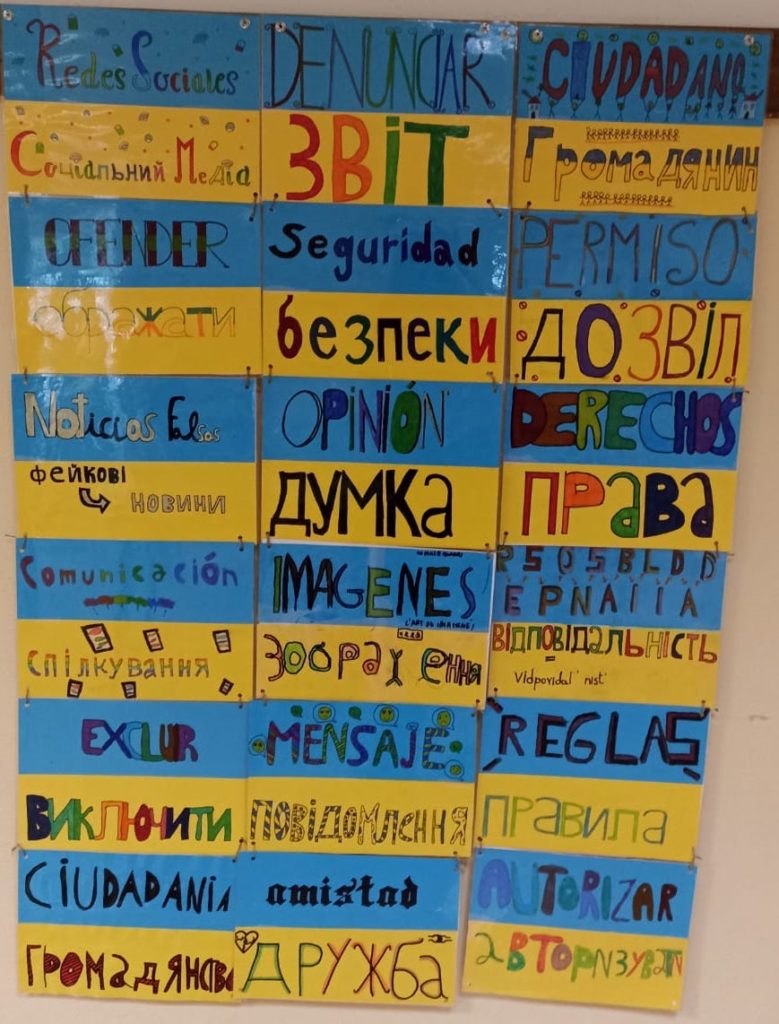 Redes Sociales
Соціальний Медіа
DENUNCIAR
ЗВіТ
CIUDADANO
Громадянин
OFENDER
ображати
Seguridad
безпеки
PERMISO
ДОЗВіЛ
Noticias Falsas
фейкові
новини
OPINIÓN
ДУМКа
DERECHOS
ПРаВа
Comunicación
Спілкування
IMAGENES
Зображення
R S O S B L D D
E P N A I I A
ВІДПОВІДАЛЬНІСТЬ
=
Vidpovidal' nist'
EXCLUIR
ВИКЛЮЧИТИ
MENSAJE
ПОВІДОМЛЕННЯ
REGLAS
ПРаВИЛа
CIUDADANiA
ГРОМаДЯНСТВО
amistad
ДРУЖБа
AUTORIZAR
авторизувати